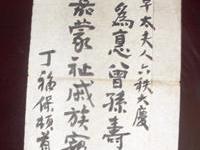 太夫人六秩大慶
為息曾孫壽
蒙祉戚族
丁福保頓首